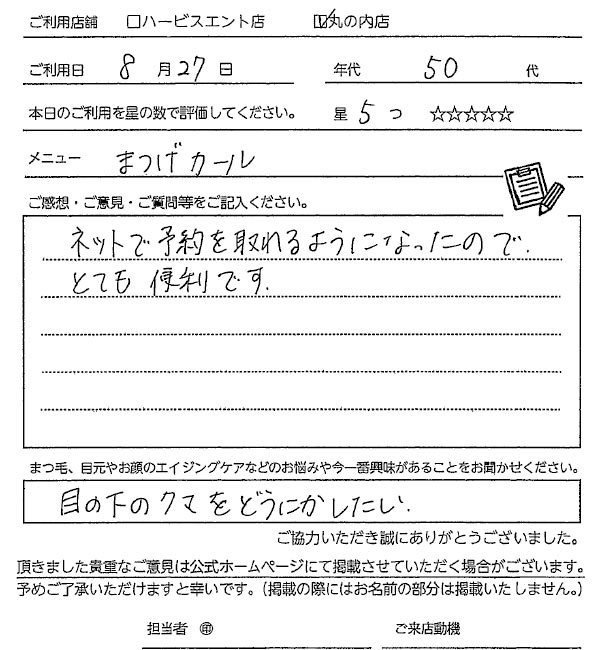 ご利用店舗 □ハービスエント店 ☑丸の内店
ご利用日 8 月 27 日 年代 50 代
本日のご利用を星の数で評価してください。 星 5 つ ☆☆☆☆☆
メニュー まつげカール
ご感想・ご意見・ご質問等をご記入ください。
ネットで予約を取れるようになったので.
とても 便利です.
まつ毛、目元やお顔のエイジングケアなどのお悩みや今一番興味があることをお聞かせください。
目の下のクマをどうにかしたい.
ご協力いただき誠にありがとうございました。
頂きました貴重なご意見は公式ホームページにて掲載させていただく場合がございます。
予めご了承いただけますと幸いです。（掲載の際にはお名前の部分は掲載いたしません。）
担当者 ㊞ ご来店動機